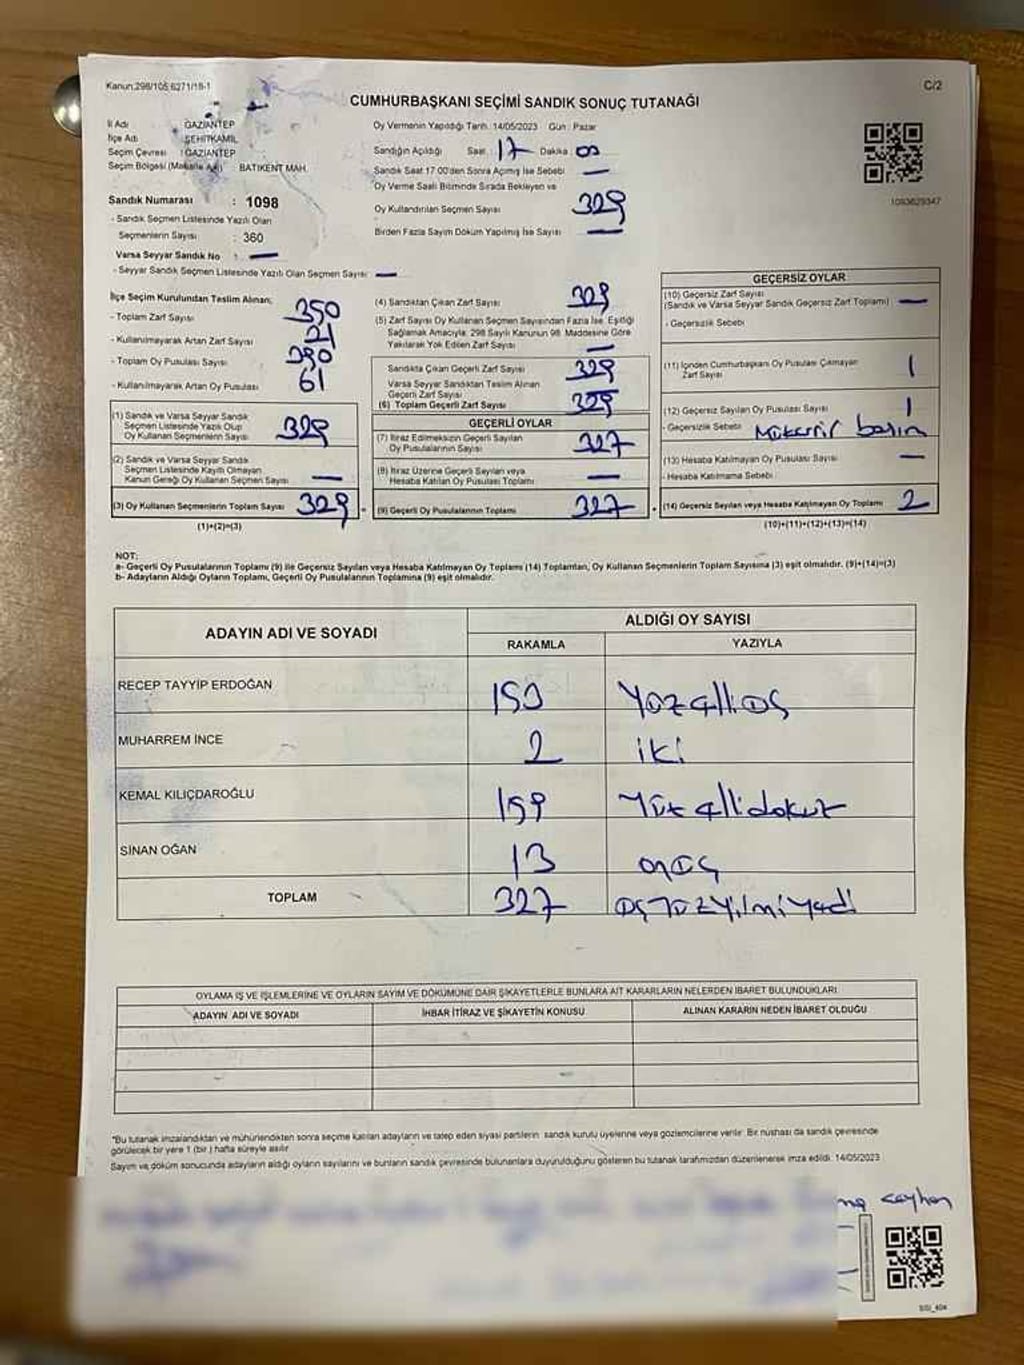 Kanun:298/105,6271/18-1
C/2
CUMHURBAŞKANI SEÇİMİ SANDIK SONUÇ TUTANAĞI
İl Adı : GAZİANTEP
İlçe Adı : ŞEHİTKAMİL
Seçim Çevresi : GAZİANTEP
Seçim Bölgesi (Mahalle Adı) BATIKENT MAH.
Sandık Numarası : 1098
- Sandık Seçmen Listesinde Yazılı Olan
Seçmenlerin Sayısı : 360
Varsa Seyyar Sandık No : —
- Seyyar Sandık Seçmen Listesinde Yazılı Olan Seçmen Sayısı —
Oy Vermenin Yapıldığı Tarih: 14/05/2023 Gün : Pazar
Sandığın Açıldığı Saat: 17 Dakika 00
Sandık Saat 17.00'den Sonra Açımış İse Sebebi —
Oy Verme Saati Bitiminde Sırada Bekleyen ve
Oy Kullandırılan Seçmen Sayısı 329
Birden Fazla Sayım Döküm Yapılmış İse Sayısı —
1093629347
İlçe Seçim Kurulundan Teslim Alınan;
- Toplam Zarf Sayısı 350
- Kullanılmayarak Artan Zarf Sayısı 21
- Toplam Oy Pusulası Sayısı 390
- Kullanılmayarak Artan Oy Pusulası 61
(1) Sandık ve Varsa Seyyar Sandık
Seçmen Listesinde Yazılı Olup
Oy Kullanan Seçmenlerin Sayısı 329
(2) Sandık ve Varsa Seyyar Sandık
Seçmen Listesinde Kayıtlı Olmayan
Kanun Gereği Oy Kullanan Seçmen Sayısı —
(3) Oy Kullanan Seçmenlerin Toplam Sayısı 329
(1)+(2)=(3)
(4) Sandıktan Çıkan Zarf Sayısı 329
(5) Zarf Sayısı Oy Kullanan Seçmen Sayısından Fazla İse, Eşitliği
Sağlamak Amacıyla, 298 Sayılı Kanunun 98. Maddesine Göre
Yakılarak Yok Edilen Zarf Sayısı —
Sandıkta Çıkan Geçerli Zarf Sayısı 329
Varsa Seyyar Sandıktan Teslim Alınan
Geçerli Zarf Sayısı
(6) Toplam Geçerli Zarf Sayısı 329
GEÇERLİ OYLAR
(7) İtiraz Edilmeksizin Geçerli Sayılan
Oy Pusulalarının Sayısı 327
(8) İtiraz Üzerine Geçerli Sayılan veya
Hesaba Katılan Oy Pusulası Toplamı —
= (9) Geçerli Oy Pusulalarının Toplamı 327
GEÇERSİZ OYLAR
(10) Geçersiz Zarf Sayısı
(Sandık ve Varsa Seyyar Sandık Geçersiz Zarf Toplamı) —
- Geçersizlik Sebebi
(11) İçinden Cumhurbaşkanı Oy Pusulası Çıkmayan
Zarf Sayısı 1
(12) Geçersiz Sayılan Oy Pusulası Sayısı 1
- Geçersizlik Sebebi
(13) Hesaba Katılmayan Oy Pusulası Sayısı —
- Hesaba Katılmama Sebebi
+ (14) Geçersiz Sayılan veya Hesaba Katılmayan Oy Toplamı 2
(10)+(11)+(12)+(13)=(14)
NOT:
a- Geçerli Oy Pusulalarının Toplamı (9) ile Geçersiz Sayılan veya Hesaba Katılmayan Oy Toplamı (14) Toplamları, Oy Kullanan Seçmenlerin Toplam Sayısına (3) eşit olmalıdır. (9)+(14)=(3)
b- Adayların Aldığı Oyların Toplamı, Geçerli Oy Pusulalarının Toplamına (9) eşit olmalıdır.
ADAYIN ADI VE SOYADI ALDIĞI OY SAYISI
RAKAMLA YAZIYLA
RECEP TAYYİP ERDOĞAN 153 Yüzelliüç
MUHARREM İNCE 2 iki
KEMAL KILIÇDAROĞLU 159 Yüzellidokuz
SİNAN OĞAN 13 onüç
TOPLAM 327 üçyüzyirmiyedi
OYLAMA İŞ VE İŞLEMLERİNE VE OYLARIN SAYIM VE DÖKÜMÜNE DAİR ŞİKAYETLERLE BUNLARA AİT KARARLARIN NELERDEN İBARET BULUNDUKLARI
ADAYIN ADI VE SOYADI İHBAR İTİRAZ VE ŞİKAYETİN KONUSU ALINAN KARARIN NEDEN İBARET OLDUĞU
*Bu tutanak imzalandıktan ve mühürlendikten sonra seçime katılan adayların ve talep eden siyasi partilerin sandık kurulu üyelerine veya gözlemcilerine verilir. Bir nüshası da sandık çevresinde
görülecek bir yere 1 (bir) hafta süreyle asılır.
Sayım ve döküm sonucunda adayların aldığı oyların sayılarını ve bunların sandık çevresinde bulunanlara duyurulduğunu gösteren bu tutanak tarafımızdan düzenlenerek imza edildi. 14/05/2023
Ceyhan